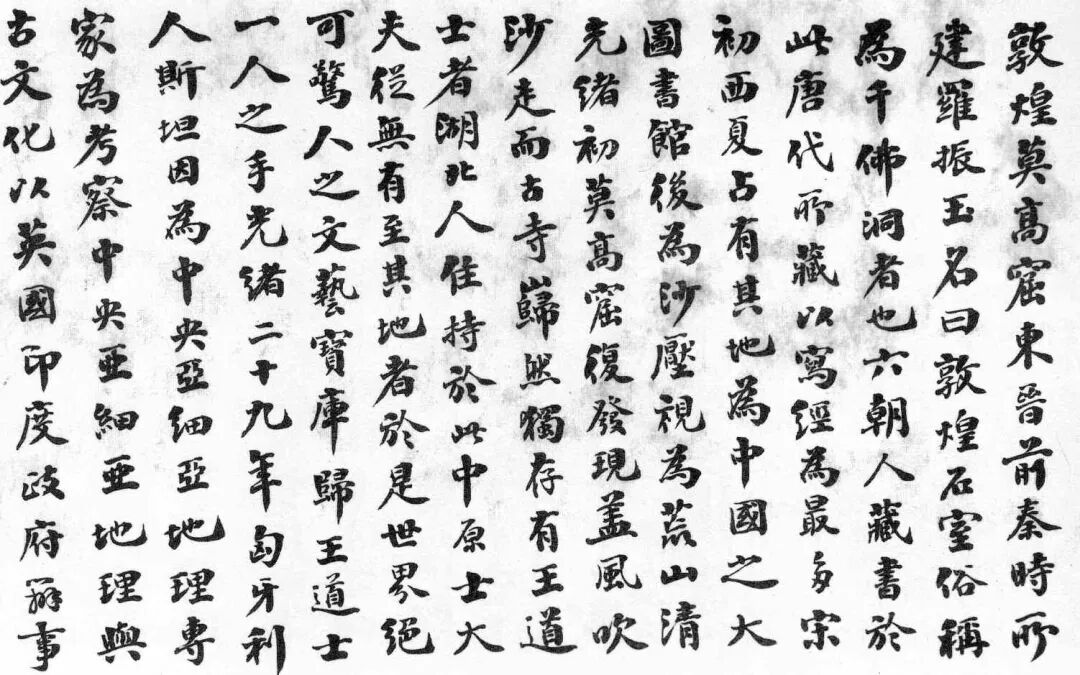 敦煌莫高窟東晉前秦時所
建羅振玉名曰敦煌石室俗稱
為千佛洞者也六朝人藏書於
此唐代所藏以寫經為最多宋
初西夏占有其地為中國之大
圖書館後為沙壓視為荒山清
光緒初莫高窟復發現蓋風吹
沙走而古寺巋然獨存有王道
士者湖北人住持於此中原士大
夫從無有至其地者於是世界絕
可驚人之文藝寶庫歸王道士
一人之手光緒二十九年匈牙利
人斯坦因為中央亞細亞地理專
家為考察中央亞細亞地理與
古文化以英國印度政府辦事